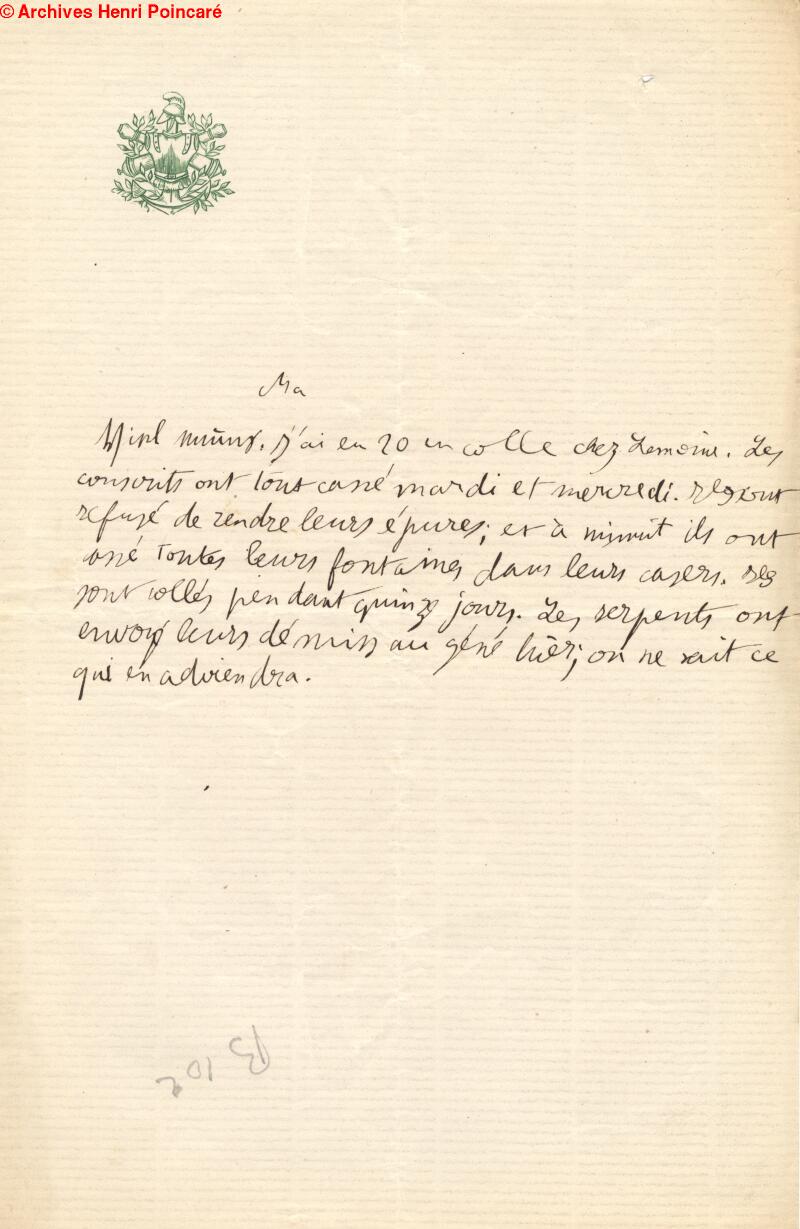 © Archives Henri Poincaré
Ma
j'ai eu 20 en colle chez Lemoine. Les
conscrits ont tout cassé mardi et mercredi. Ils ont
refusé de rendre leurs épures; et à minuit ils ont
cassé toutes leurs fontaines dans leurs casers. Ils
sont collés pendant quinze jours. Les serpents ont
envoyé leurs démiss au géné hier; on ne sait ce
qui en adviendra.
B 102